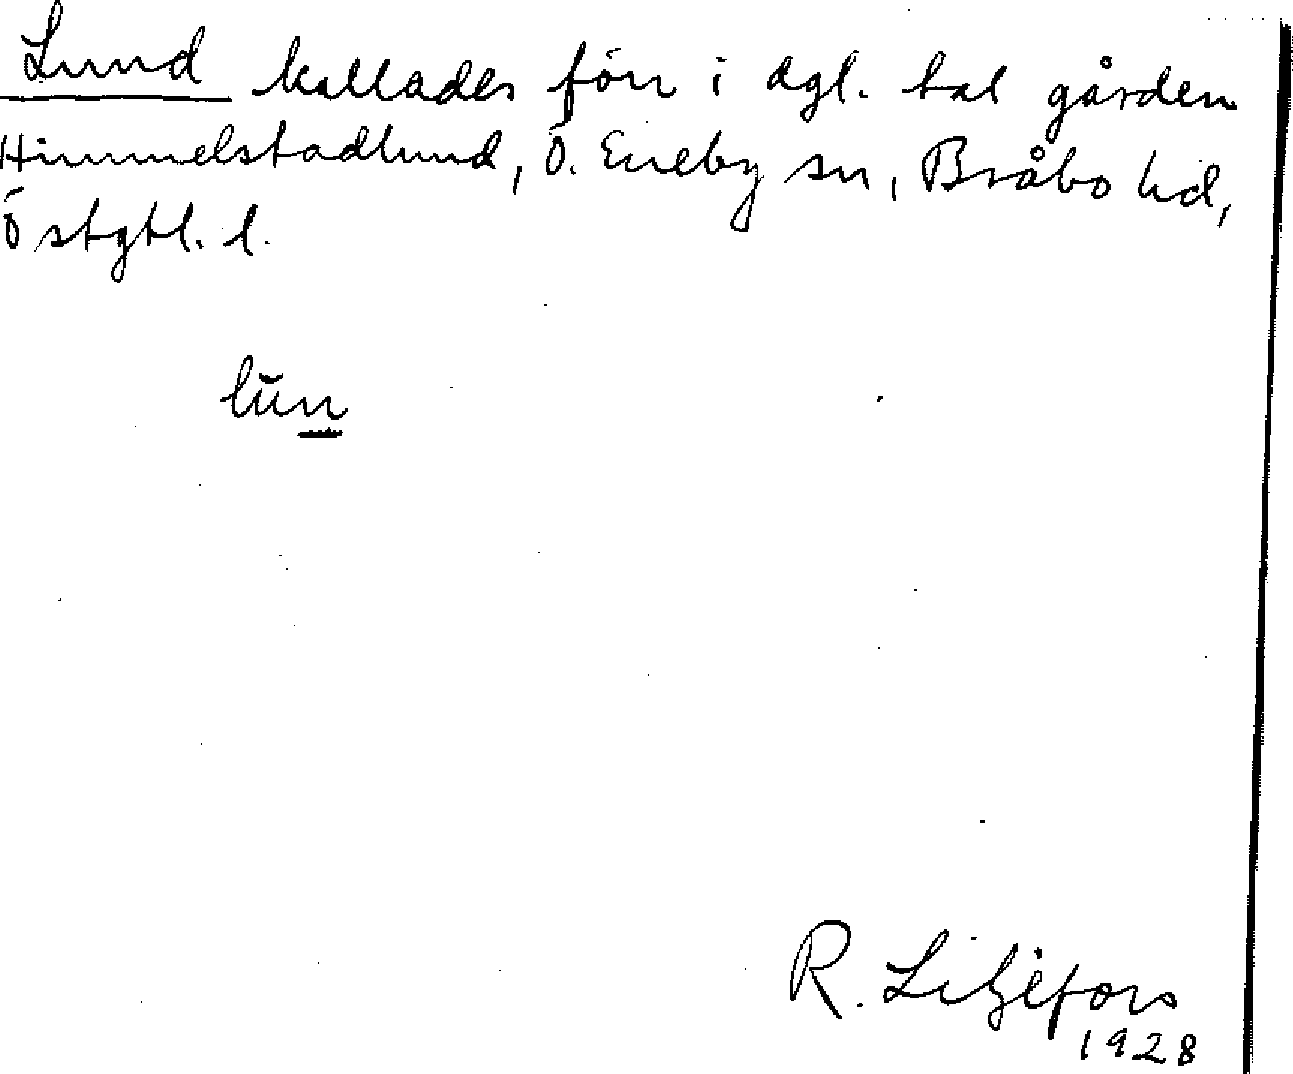 Lund kallades förr i dgl. tal gården
Himmelstadlund, Ö. Eneby sn, Bråbo hd,
Östgtl. l.
lŭn
R. Liljefors
1928